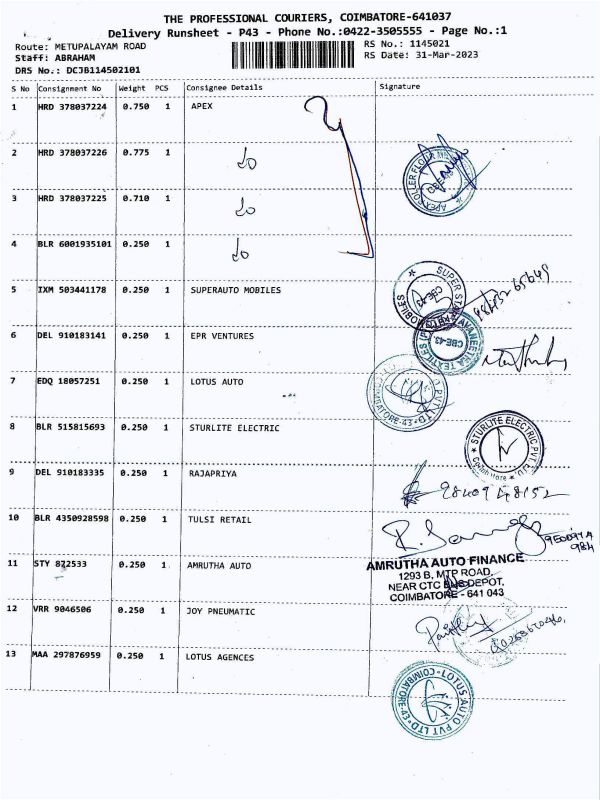 THE PROFESSIONAL COURIERS, COIMBATORE-641037
Delivery Runsheet - P43 - Phone No.:0422-3505555 - Page No.:1
Route: METUPALAYAM ROAD
RS No.: 1145021
Staff: ABRAHAM
RS Date: 31-Mar-2023
DRS No.: DCJB114502101
S No Consignment No Weight PCS Consignee Details Signature
1 HRD 378037224 0.750 1 APEX
2 HRD 378037226 0.775 1
3 HRD 378037225 0.710 1
4 BLR 6001935101 0.250 1
5 IXM 503441178 0.250 1 SUPERAUTO MOBILES
6 DEL 910183141 0.250 1 EPR VENTURES
7 EDQ 18057251 0.250 1 LOTUS AUTO
8 BLR 515815693 0.250 1 STURLITE ELECTRIC
STURLITE ELECTRIC PVT
9 DEL 910183335 0.250 1 RAJAPRIYA
98409 48152
10 BLR 4350928598 0.250 1 TULSI RETAIL
11 STY 822533 0.250 1 AMRUTHA AUTO
AMRUTHA AUTO FINANCE
1293 B, MTP ROAD,
NEAR CTC BUS DEPOT,
COIMBATORE - 641 043
12 VRR 9046506 0.250 1 JOY PNEUMATIC
13 MAA 297876959 0.250 1 LOTUS AGENCES
LOTUS AUTO PVT LTD
COIMBATORE